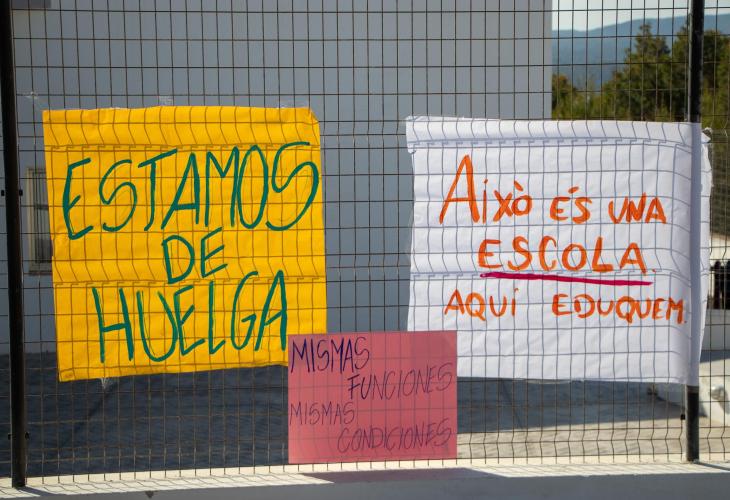 ESTAMOS
DE
HUELGA
Això ÉS UNA
ESCOLA.
AQUÍ EDUQUEM.
MISMAS
FUNCIONES
MISMAS
CONDICIONES